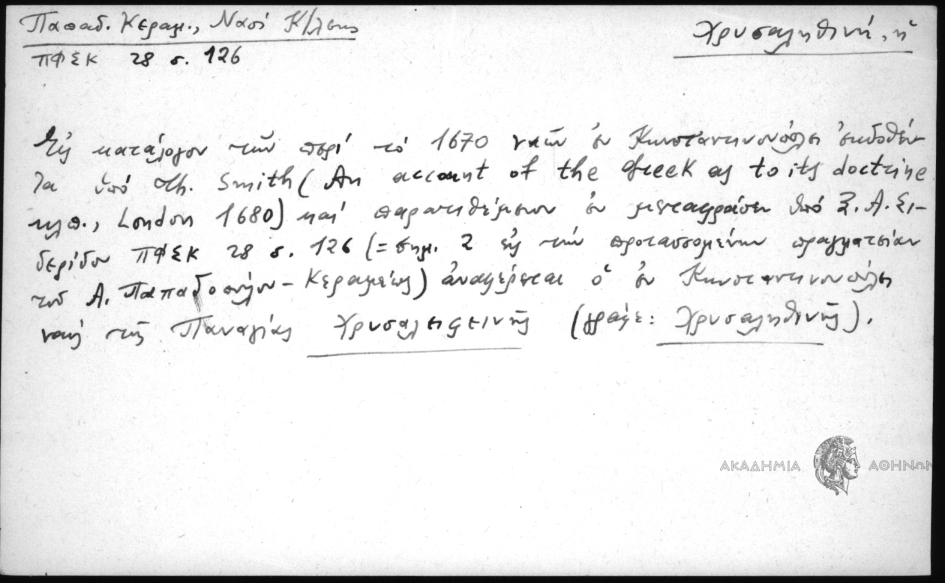 Παπαδ. Κεραμ., Ναοί Κ/λεως
ΠΦΣΚ 28 σ. 126
Χρυσαληθινή, ἡ
Εἰς κατάλογον τῶν περί τό 1670 ναῶν ἐν Κωνσταντινουπόλει ἐκδοθέν-
τα ὑπό Th. Smith (An account of the Greek as to its doctrine
κλπ., London 1680) καί παρατιθέμενον ἐν μεταφράσει ὑπό Ξ. Α. Σι-
δερίδου ΠΦΣΚ 28 σ. 126 (= σημ. 2 εἰς τήν προτασσομένην πραγματείαν
τοῦ Α. Παπαδοπούλου-Κεραμέως) ἀναφέρεται ὁ ἐν Κωνσταντινουπόλει
ναός τῆς Παναγίας Χρυσαλειφεινῆς (γράφε: Χρυσαληθινῆς).
ΑΚΑΔΗΜΙΑ ΑΘΗΝΩΝ